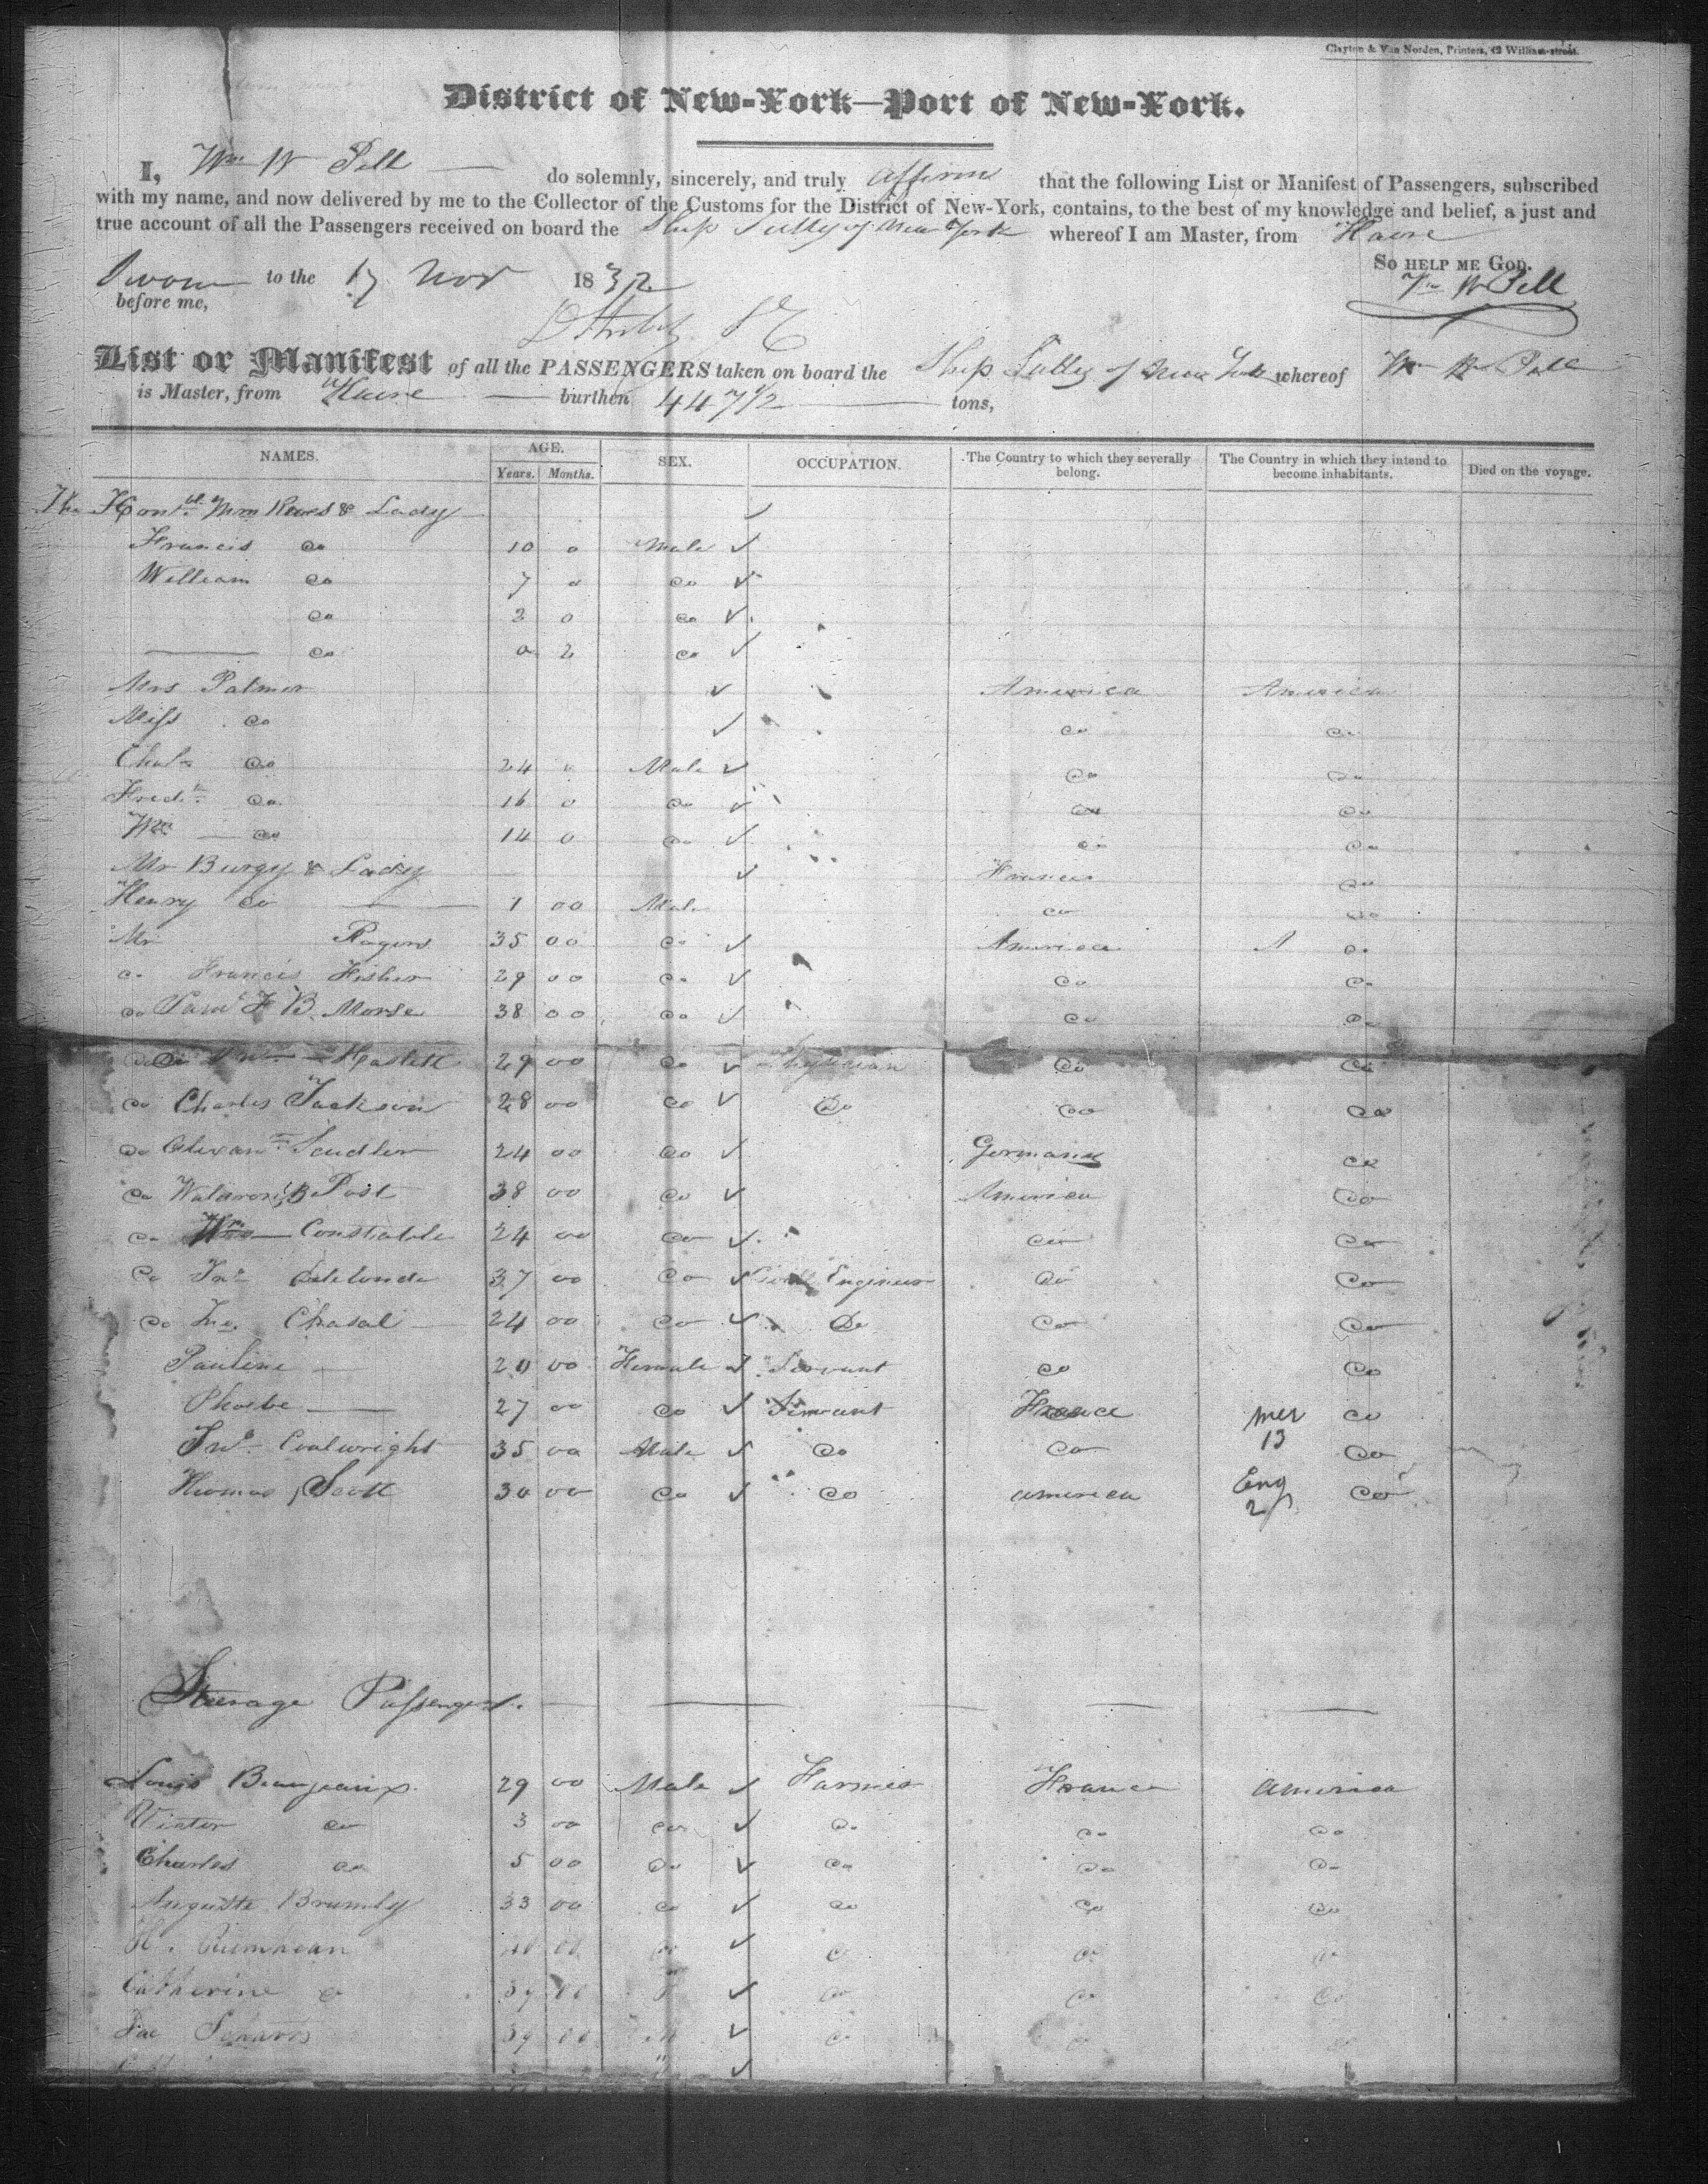 Clayton & Van Norden, Printers, 42 William-street.
District of New-York—Port of New-York.
I, Wm W Pell do solemnly, sincerely, and truly affirm that the following List or Manifest of Passengers, subscribed
with my name, and now delivered by me to the Collector of the Customs for the District of New-York, contains, to the best of my knowledge and belief, a just and
true account of all the Passengers received on board the Ship Sully of New York whereof I am Master, from Havre
So help me God.
Sworn to the 17 Nov 1832
Wm W Pell
before me,
List or Manifest of all the PASSENGERS taken on board the Ship Sully of New York whereof Wm W Pell
is Master, from Havre burthen 447 1/2 tons,
NAMES. AGE. SEX. OCCUPATION. The Country to which they severally belong. The Country in which they intend to become inhabitants. Died on the voyage.
Years. Months.
The Honble Wm Rives & Lady
Francis do 10 0 Male
William do 7 0 do
do 2 0 do
do 0 2 do
Mrs Palmer America America
Miss do do do
Chals do 24 0 Male do do
Fredk do 16 0 do do do
Wm do 14 0 do do do
Mr Burgy & Lady France do
Henry do 1 00 Male do do
Mr Rogers 35 00 do America do
do Francis Fisher 29 00 do do do
do Saml F B Morse 38 00 do do do
do Haslett 29 00 do Physician do do
do Charles Jackson 28 00 do Do do do
do Alexanr 24 00 do Germany do
do Waldron B Post 38 00 do America do
do Wm Constable 24 00 do do do
do 37 00 do Civil Engineer do do
do Chasal 24 00 do Do do do
Pauline 20 00 Female Servant do do
Phoebe 27 00 do Servant France do
mer
13
Jno Coalwright 35 00 Male do do do
Thomas Scott 30 00 do do America do
Eng
2
Steerage Passengers.
Louis Beaujeaux 29 00 Male Farmer France America
do 3 00 do do do do
Charles do 5 00 do do do do
Auguste 33 00 do do do do
H. 00 do do do do
Catherine do 39 00 F do do do
39 00 M do do